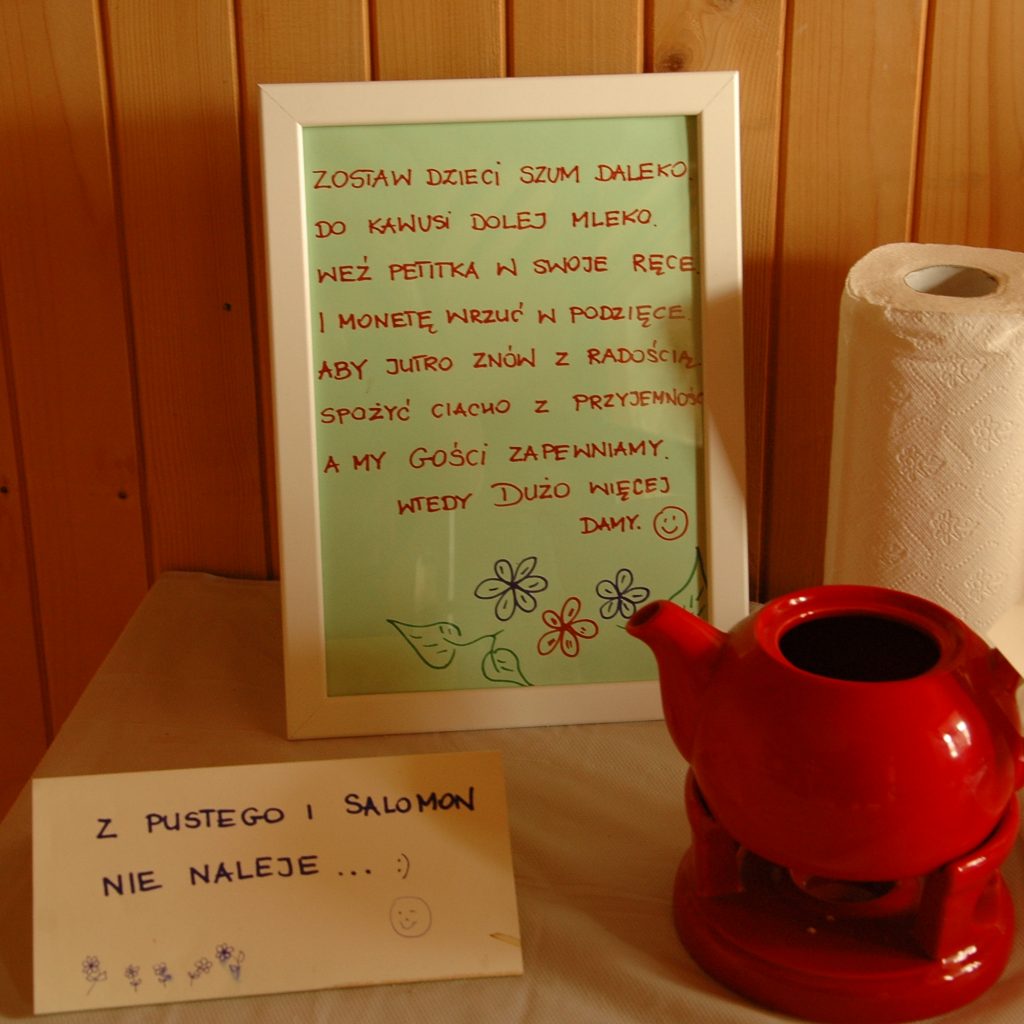 ZOSTAW DZIECI SZUM DALEKO.
DO KAWUSI DOLEJ MLEKO.
WEŹ PETITKA W SWOJE RĘCE.
I MONETĘ WRZUĆ W PODZIĘCE.
ABY JUTRO ZNÓW Z RADOŚCIĄ.
SPOŻYĆ CIACHO Z PRZYJEMNOŚC
A MY GOŚCI ZAPEWNIAMY.
WTEDY DUŻO WIĘCEJ
DAMY.
Z PUSTEGO I SALOMON
NIE NALEJE... :)